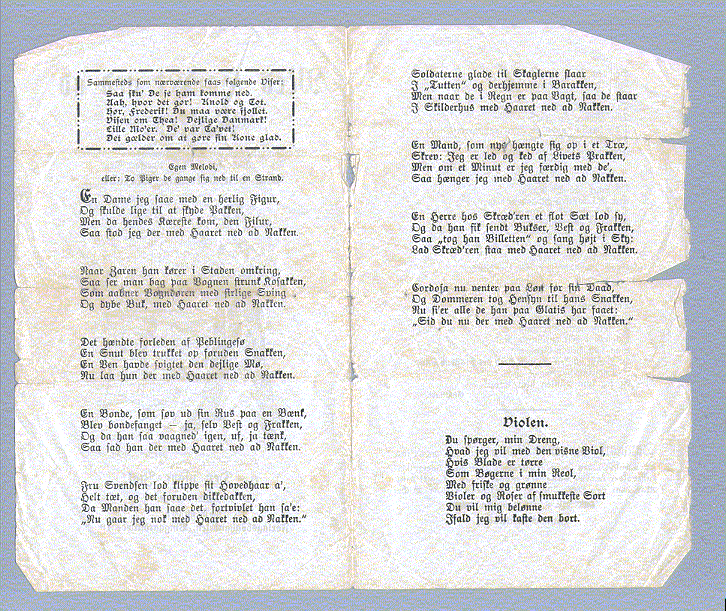 Sammesteds som nærværende faas følgende Viser:
Saa sku' De se ham komme ned.
Aah, hvor det gør! Knold og Tot.
Hør, Frederik! Du maa være fjollet.
Visen om Thea! Dejlige Danmark!
Lille Mo'er. De' var Ca'vet!
Det gælder om at gøre sin Kone glad.
Egen Melodi,
eller: To Piger de gange sig ned til en Strand.
En Dame jeg saae med en herlig Figur,
Og skulde lige til at skyde Pakken,
Men da hendes Kæreste kom, den Filur,
Saa stod jeg der med Haaret ned ad Nakken.
Naar Zaren han kører i Staden omkring,
Saa ser man bag paa Vognen strunk Kosakken,
Som aabner Vogndøren med sirlige Sving
Og dybe Buk, med Haaret ned ad Nakken.
Det hændte forleden af Peblingesø
En Snut blev trukket op foruden Snakken,
En Ven havde svigtet den dejlige Mø,
Nu laa hun der med Haaret ned ad Nakken.
En Bonde, som sov ud sin Rus paa en Bænk,
Blev bondefanget — ja, selv Vest og Frakken,
Og da han saa vaagned' igen, uf, ja tænk,
Saa sad han der med Haaret ned ad Nakken.
Fru Svendsen lod klippe sit Hovedhaar a',
Helt tæt, og det foruden dikkedakken,
Da Manden han saae det, fortvivlet han sa'e:
„Nu gaar jeg nok med Haaret ned ad Nakken.“
Soldaterne glade til Skaglerne slaar
I „Tutten“ og derhjemme i Barakken,
Men naar de i Regn er paa Vagt, saa de staar
I Skilderhus med Haaret ned ad Nakken.
En Mand, som nys' hængte sig op i et Træ,
Skrev: Jeg er led og ked af Livets Prakken,
Men om et Minut er jeg færdig med de',
Saa hænger jeg med Haaret ned ad Nakken.
En Herre hos Skræd'ren et flot Sæt lod sy,
Og da han fik sendt Bukser, Vest og Frakken,
Saa „tog han Billetten“ og sang højt i Sky:
Lad Skræd'ren staa med Haaret ned ad Nakken.
Cordosa nu venter paa Løn før sin Daad,
Og Dommeren tog Hensyn til hans Snakken,
Nu si'er alle de han paa Glatis har faaet:
„Sid du nu der med Haaret ned ad Nakken.“
Violen.
Du spørger, min Dreng,
Hvad jeg vil med den visne Viol,
Hvis Blade er tørre
Som Bøgerne i min Reol,
Med friske og grønne
Violer og Roser af smukkeste Sort
Du vil mig belønne
Ifald jeg vil kaste den bort.